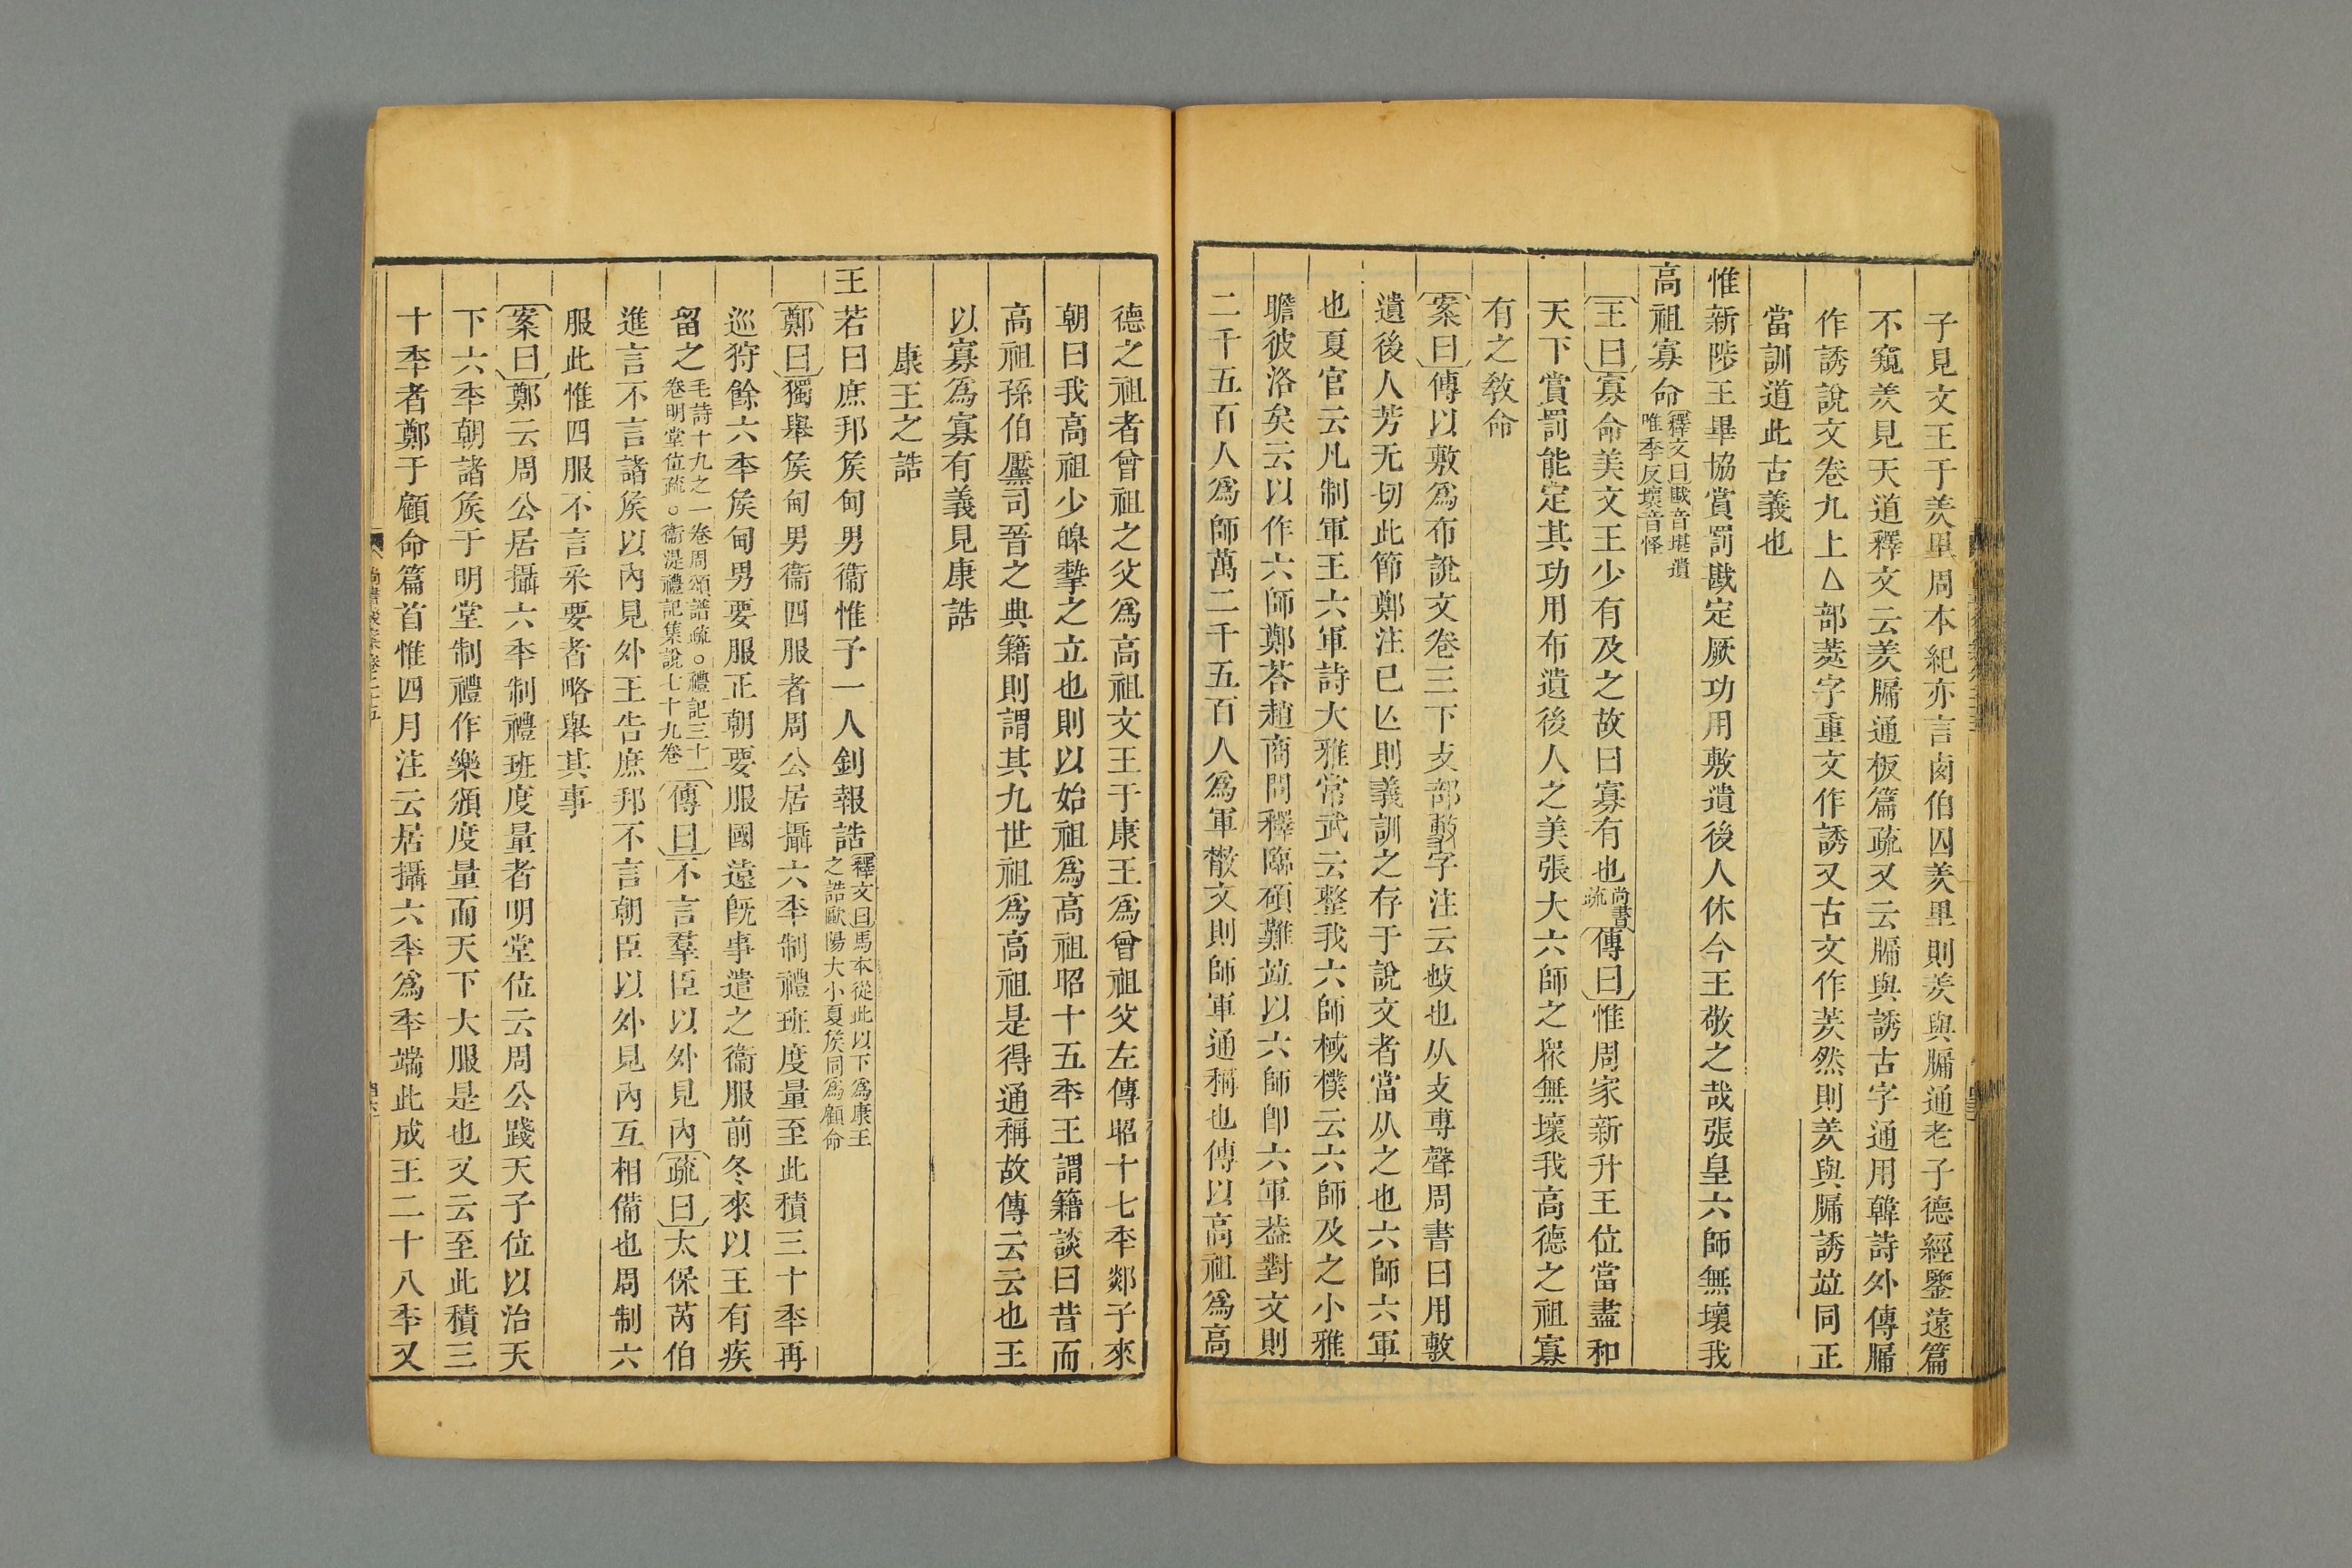 子見文王于羑里周本紀亦言㢴伯囚羑里則羑與牖通老子德經鑒遠篇
不窺羑見天道釋文云羑牖通板篇疏又云牖與誘古字通用韓詩外傳牖
作誘說文卷九上厶部羑字重文作誘又古文作羑然則羑與牖誘竝同正
當訓道此古義也
惟新陟王畢協賞罰戡定厥功用敷遺後人休今王敬之哉張皇六師無壞我
高祖寡命釋文曰戡音堪遺唯季反壞音怪
王曰寡命美文王少有及之故曰寡有也尚書疏傳曰惟周家新升王位當盡和
天下賞罰能定其功用布遺後人之美張大六師之眾無壞我高德之祖寡
有之敎命
案曰傳以敷爲布說文卷三下攴部敷字注云㪺也从攴尃聲周書曰用敷
遺後人芳无切此節鄭注已亾則義訓之存于說文者當从之也六師六軍
也夏官云凡制軍王六軍詩大雅常武云整我六師棫樸云六師及之小雅
瞻彼洛矣云以作六師鄭荅趙商問釋臨碩難竝以六師卽六軍葢對文則
二千五百人爲師萬二千五百人爲軍散文則師軍通稱也傳以高祖爲高
德之祖者曾祖之父爲高祖文王于康王爲曾祖父左傳昭十七秊郯子來
朝曰我高祖少皞摯之立也則以始祖爲高祖昭十五秊王謂籍談曰昔而
高祖孫伯黶司晉之典籍則謂其九世祖爲高祖是得通稱故傳云云也王
以寡爲寡有義見康誥
康王之誥
王若曰庶邦矦甸男衞惟予一人釗報誥釋文曰馬本從此以下爲康王之誥歐陽大小夏矦同爲顧命
鄭曰獨舉矦甸男衞四服者周公居攝六秊制禮班度量至此積三十秊再
巡狩餘六秊矦甸男要服正朝要服國遠旣事遣之衞服前冬來以王有疾
畱之毛詩十九之一卷周頌譜疏○禮記三十一卷明堂位疏○衞湜禮記集說七十九卷傳曰不言羣臣以外見內疏曰太保芮伯
進言不言諸矦以內見外王告庶邦不言朝臣以外見內互相備也周制六
服此惟四服不言采要者略舉其事
案曰鄭云周公居攝六秊制禮班度量者明堂位云周公踐天子位以治天
下六秊朝諸矦于明堂制禮作樂頒度量而天下大服是也又云至此積三
十秊者鄭于顧命篇首惟四月注云居攝六秊爲秊端此成王二十八秊又